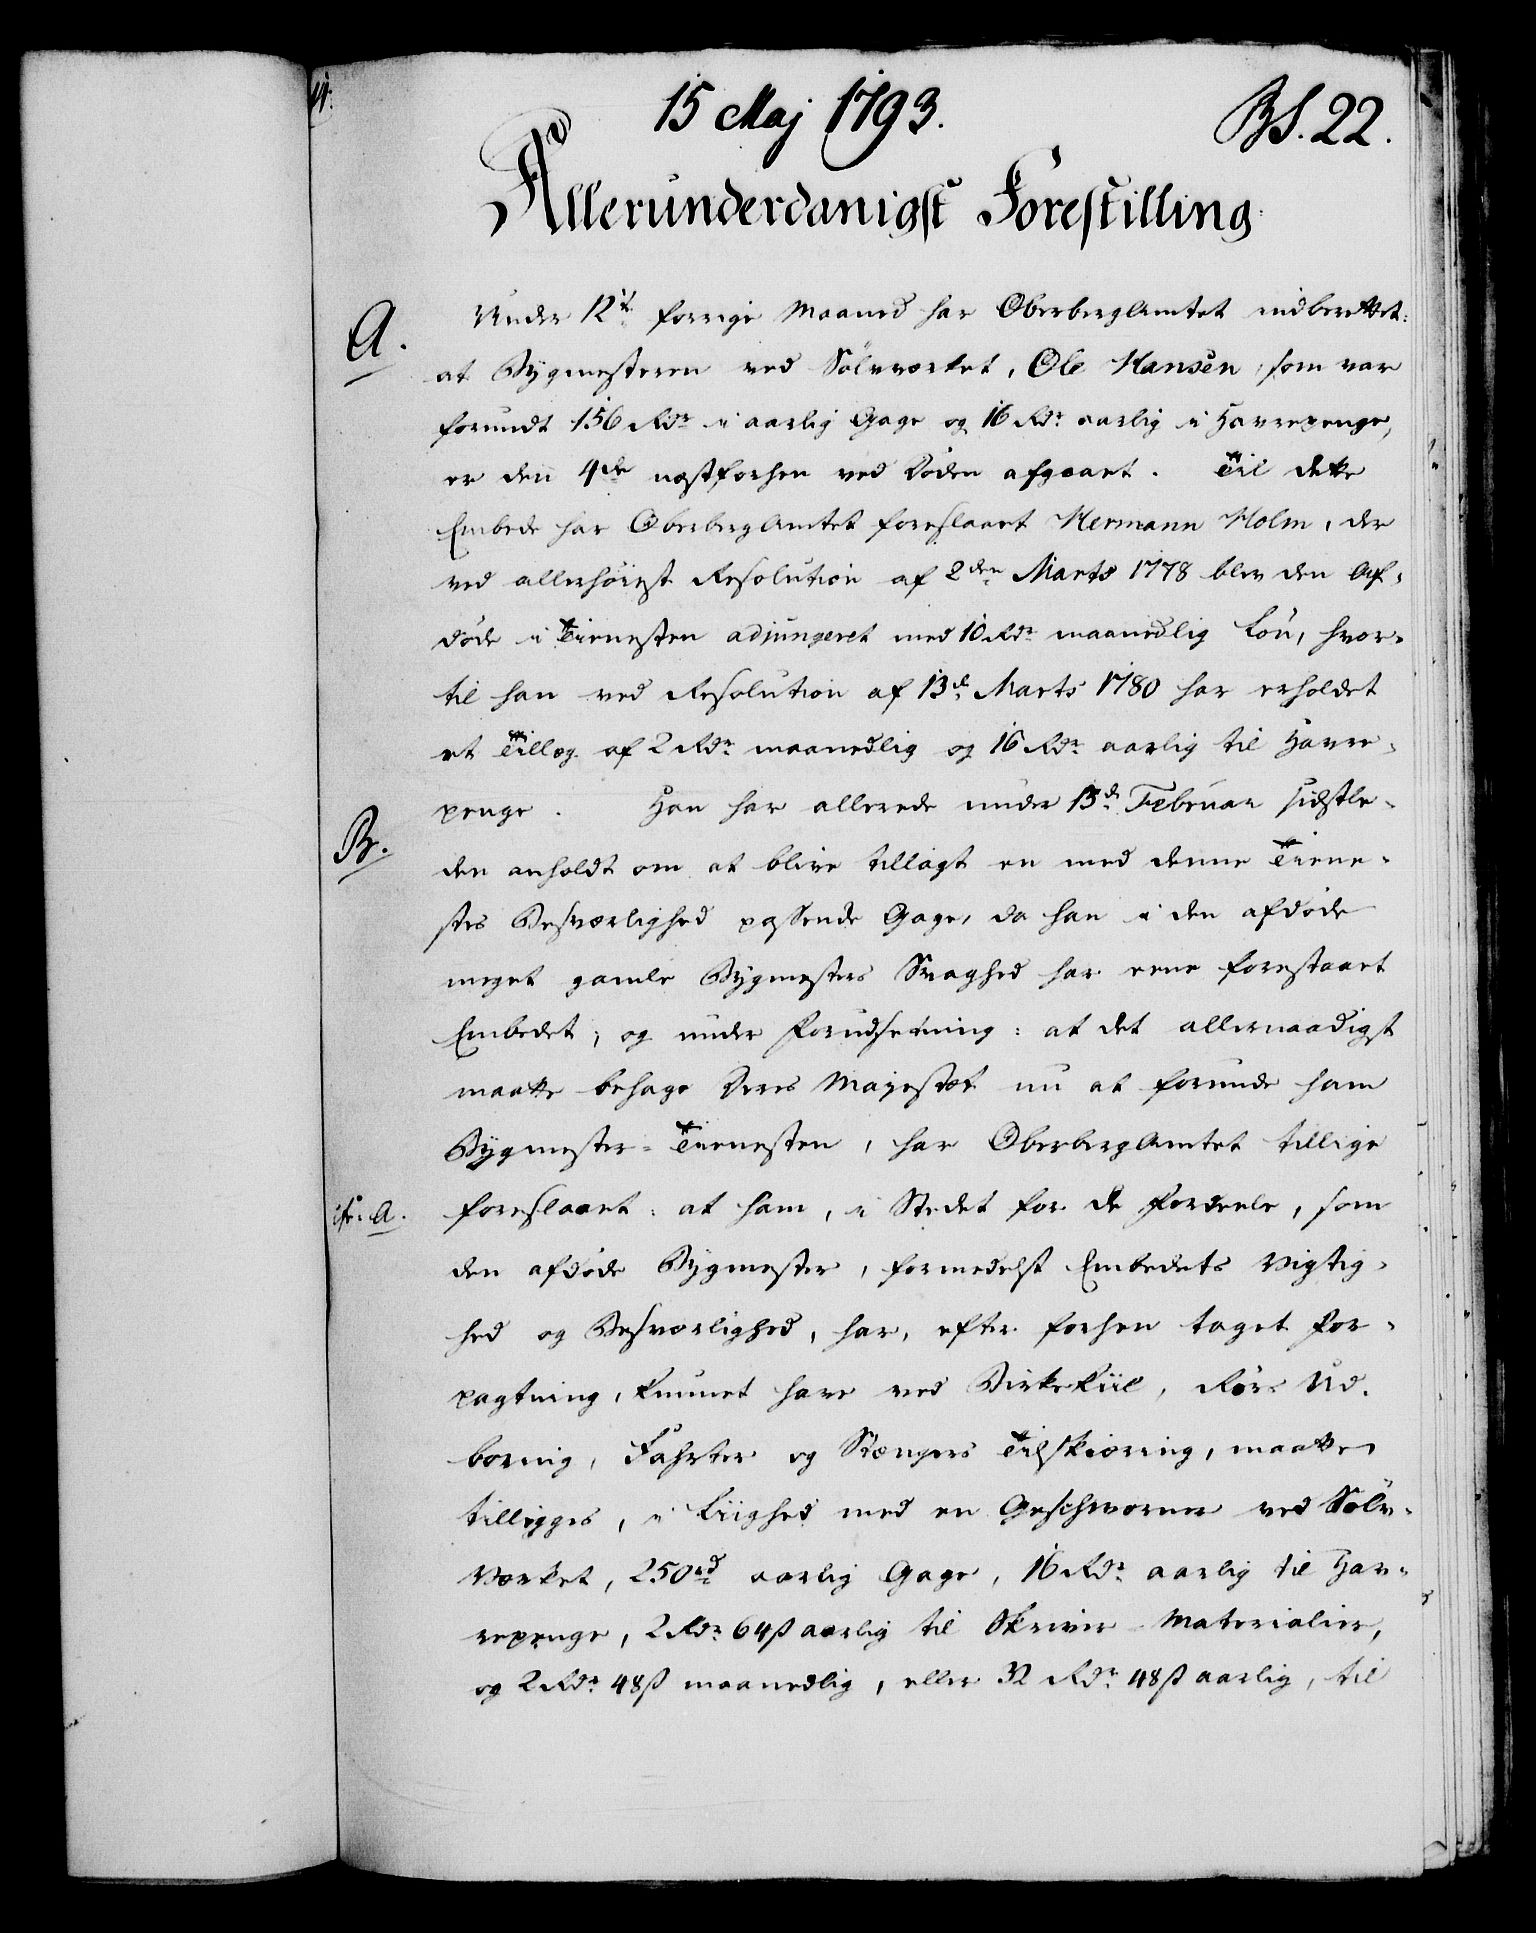 15 Maj 1793.
BS. 22.
Allerunderdanigst Forestilling
A.
Under 12te forrige Maaned har OberbergAmtet indberettet:
at Bygmesteren ved Sölvværket, Ole Hansen, som var
forundt 156 Rdr i aarlig Gage og 16 Rdr aarlig i Havrepenge,
er den 4de næstforhen ved Döden afgaaet. Til dette
Embede har OberbergAmtet foreslaaet Hermann Holm, der
ved allerhöiest Resolution af 2den Marts 1778 blev den Af-
döde i Tienesten adjungeret med 10 Rdr maanedlig Lön, hvor-
til han ved Resolution af 13de Marts 1780 har erholdet
et Tillæg af 2 Rdr maanedlig og 16 Rdr aarlig til Havre-
penge. Han har allerede under 13de Februar sidstle-
B.
den anholdt om at blive tillagt en med denne Tiene-
stes Besværlighed passende Gage, da han i den afdöde
meget gamle Bygmesters Svaghed har eene forestaaet
Embedet; og under Forudsetning: at det allernaadigst
maatte behage Deres Majestæt nu at forunde ham
Bygmester-Tienesten, har OberbergAmtet tillige
cfr: A.
foreslaaet: at ham, i Stedet for de Fordeele, som
den afdöde Bygmester, formedelst Embedets Vigtig-
hed og Besværlighed, har, efter forhen taget For-
pagtning, kunnet have ved Birkekiil, Rörs Ud-
boring, Fahrter og Stængers Tilskiæring, maatte
tillegges, i Liighed med en Geschworner ved Sölv-
Værket, 250 rd aarlig Gage, 16 Rdr aarlig til Hav-
repenge, 2 Rdr 64 ß aarlig til Skrive-Materialier,
og 2 Rdr 48 ß maanedlig, eller 32 Rdr 48 ß aarlig, til